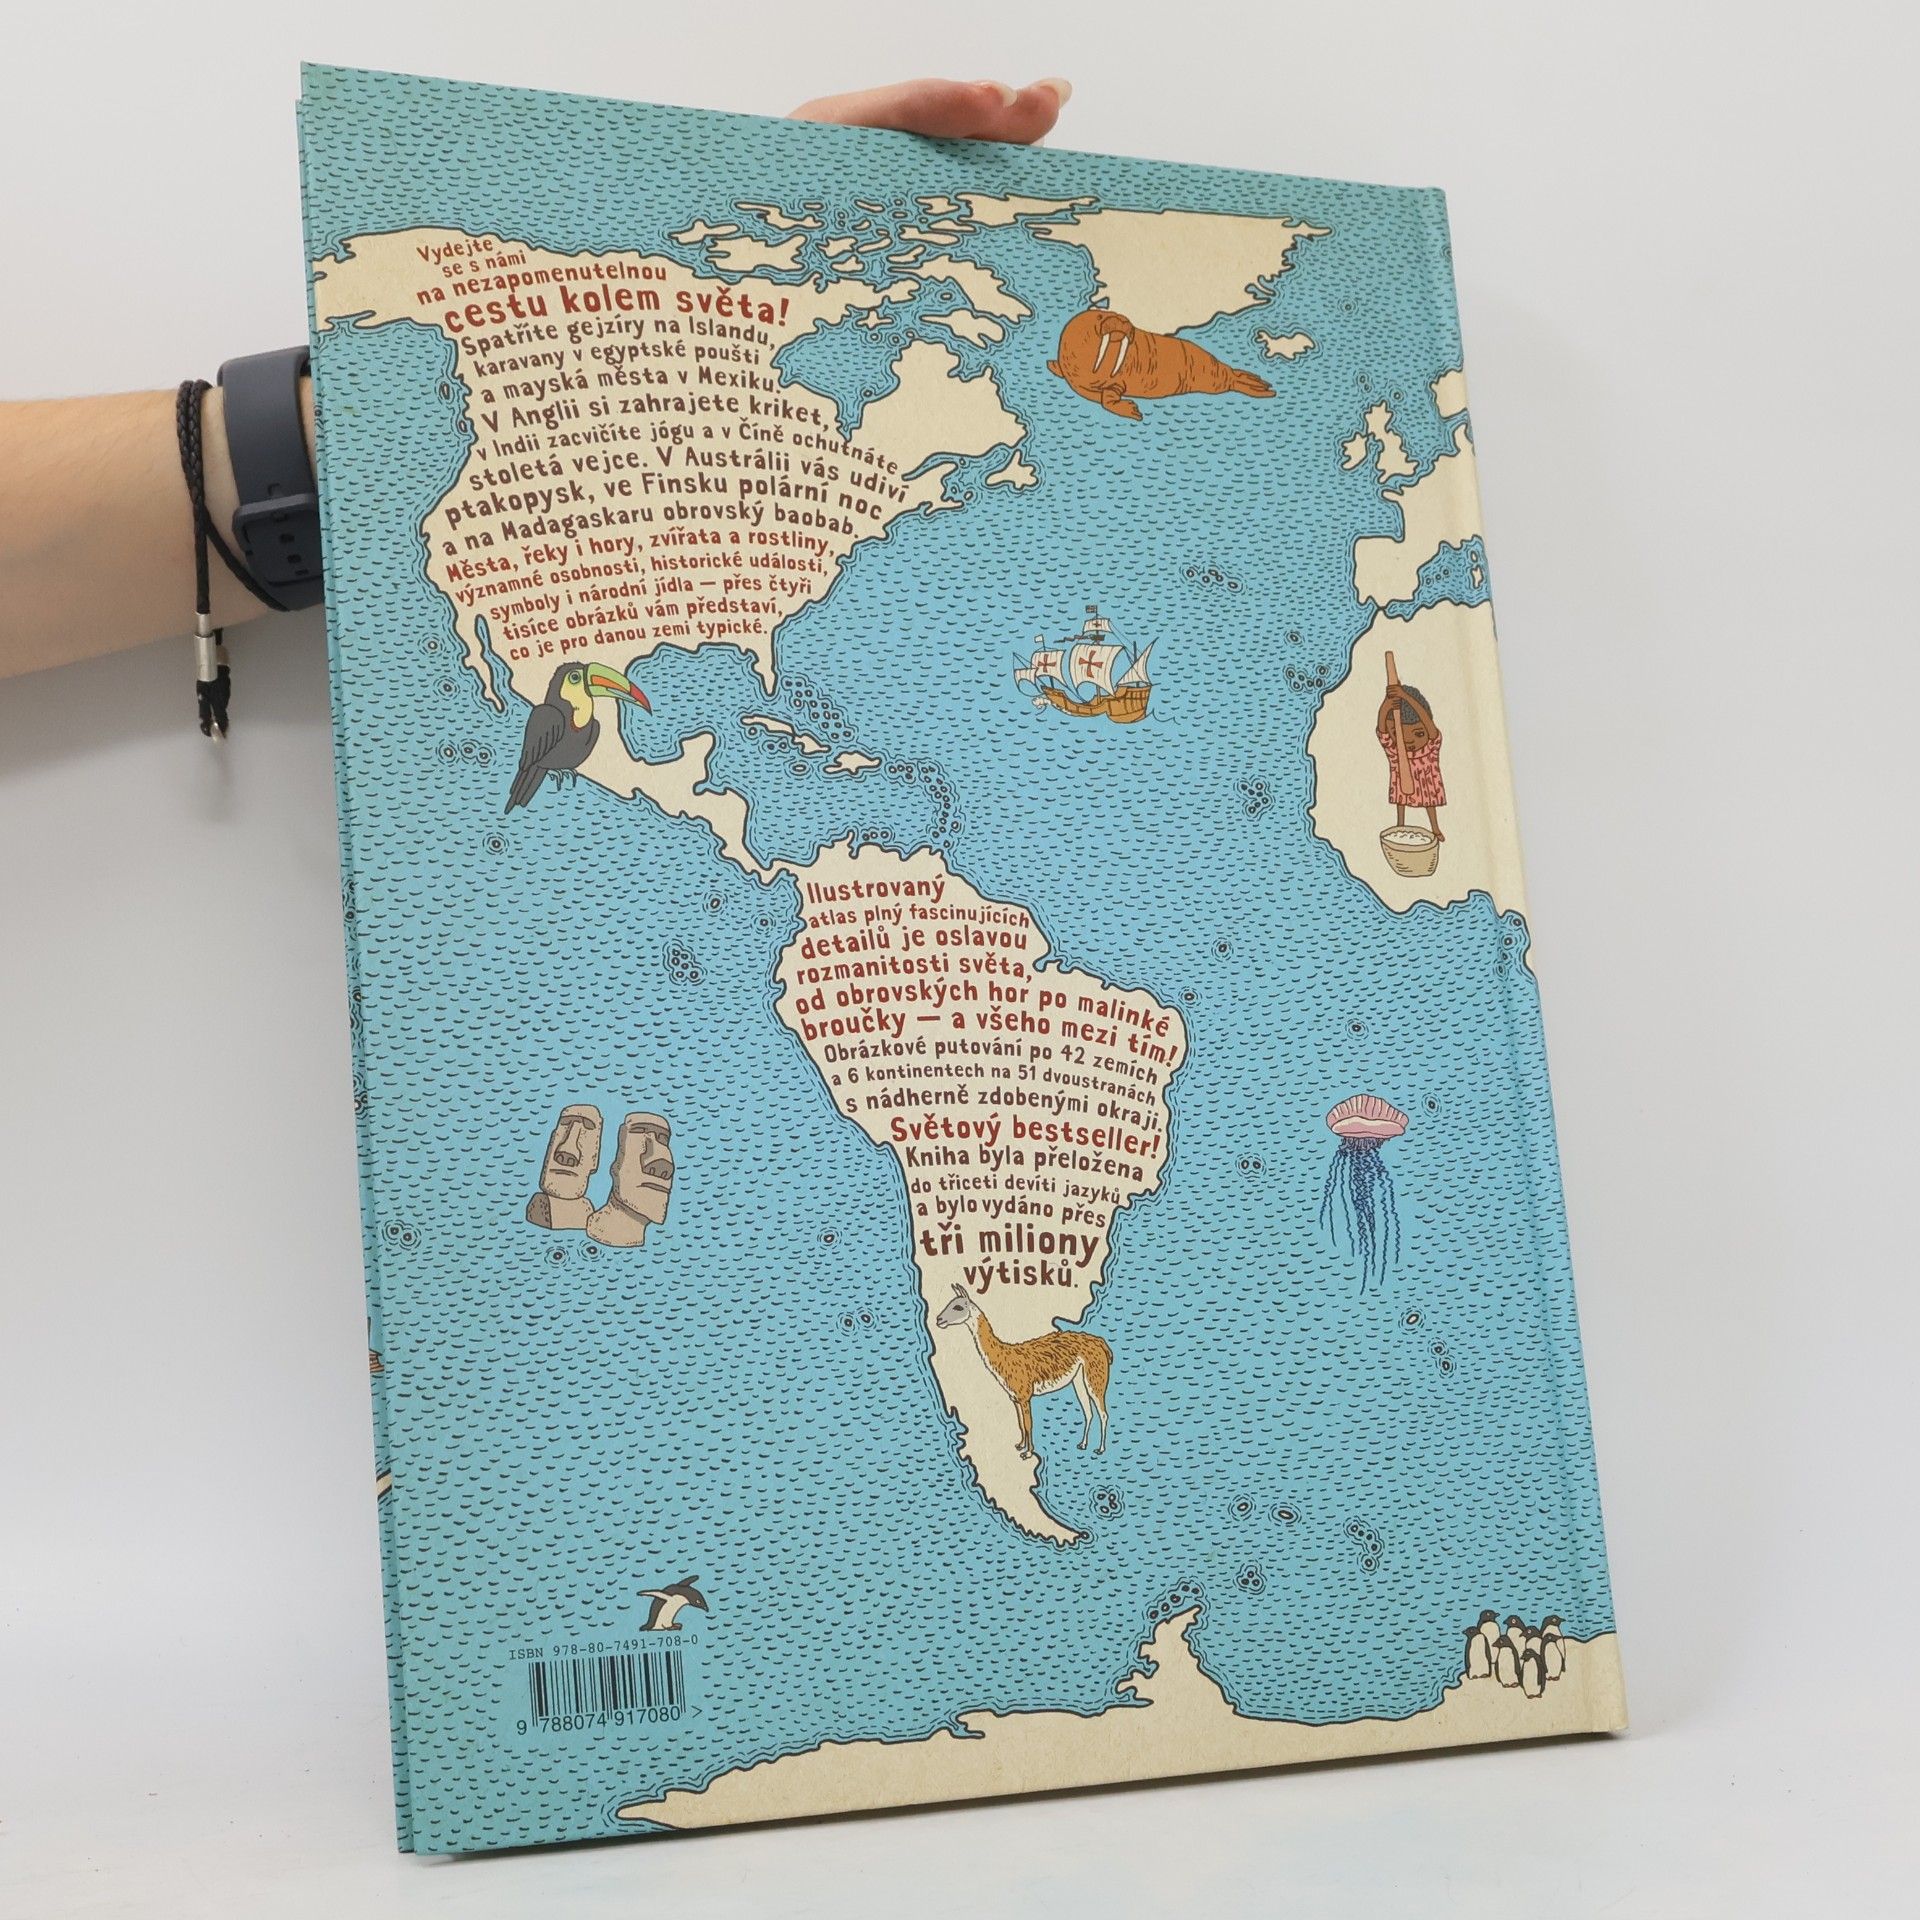 Vydejte
se s námi
na nezapomenutelnou
cestu kolem světa!
Spatříte gejzíry na Islandu,
karavany v egyptské poušti
a mayská města v Mexiku.
V Anglii si zahrajete kriket,
v Indii zacvičíte jógu a v Číně ochutnáte
stoletá vejce. V Austrálii vás udiví
ptakopysk, ve Finsku polární noc
a na Madagaskaru obrovský baobab.
Města, řeky i hory, zvířata a rostliny,
významné osobnosti, historické události,
symboly i národní jídla — přes čtyři
tisíce obrázků vám představí,
co je pro danou zemi typické.
Ilustrovaný
atlas plný fascinujících
detailů je oslavou
rozmanitosti světa,
od obrovských hor po malinké
broučky — a všeho mezi tím!
Obrázkové putování po 42 zemích
a 6 kontinentech na 51 dvoustranách
s nádherně zdobenými okraji.
Světový bestseller!
Kniha byla přeložena
do třiceti devíti jazyků
a bylo vydáno přes
tři miliony
výtisků.
ISBN 978-80-7491-708-0
9 788074 917080 >